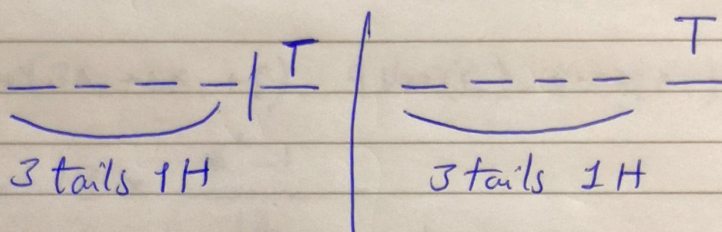 T T
3 tails 1H 3 tails 1H